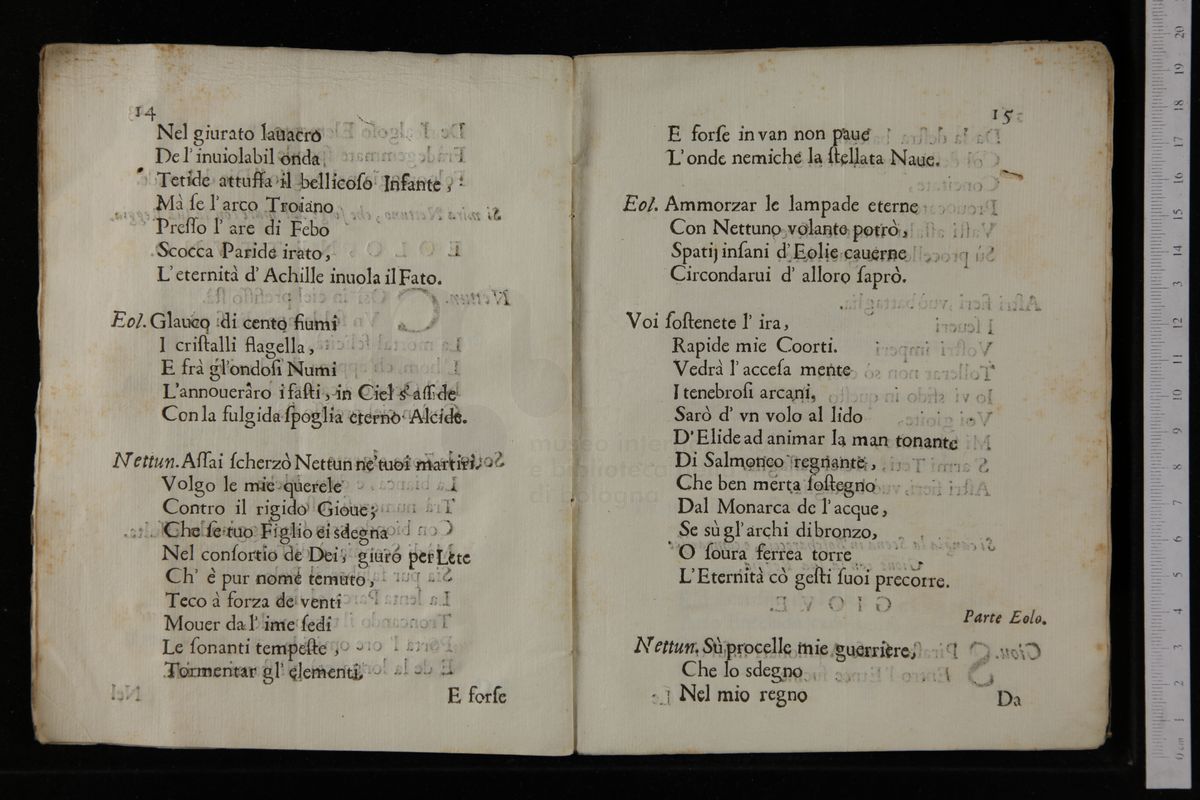 14
Nel giurato lauacro
De l' inuiolabil onda
Tetide attuffa il bellicoſo Infante,
Mà ſe l'arco Troiano
Preſſo l' are di Febo
Scocca Paride irato,
L'eternità d' Achille inuola il Fato.
Eol. Glauco di cento fiumi
I criſtalli flagella,
E frà gl'ondoſi Numi
L'annoueràro i faſti, in Ciel s' aſſide
Con la fulgida ſpoglia eterno Alcide.
Nettun. Aſſai ſcherzò Nettun ne' tuoi martiri.
Volgo le mie querele
Contro il rigido Gioue;
Che ſe tuo Figlio ei sdegna
Nel conſortio de Dei, giuró per Lete
Ch' è pur nome temuto,
Teco à forza de venti
Mouer da l' ime ſedi
Le ſonanti tempeſte,
Tormentar gl' elementi,
E forſe
15
E forſe in van non paue
L'onde nemiche la ſtellata Naue.
Eol. Ammorzar le lampade eterne
Con Nettuno volante potrò,
Spatij inſani d'Eolie cauerne
Circondarui d' alloro ſaprò.
Voi ſoſtenete l' ira,
Rapide mie Coorti.
Vedrà l' acceſa mente
I tenebroſi arcani,
Sarò d' vn volo al lido
D'Elide ad animar la man tonante
Di Salmoneo regnante,
Che ben merta ſoſtegno
Dal Monarca de l'acque,
Se sù gl'archi di bronzo,
O ſoura ferrea torre
L'Eternità cò geſti ſuoi precorre.
Parte Eolo.
Nettun. Sù procelle mie guerriere,
Che lo sdegno
Nel mio regno
Da